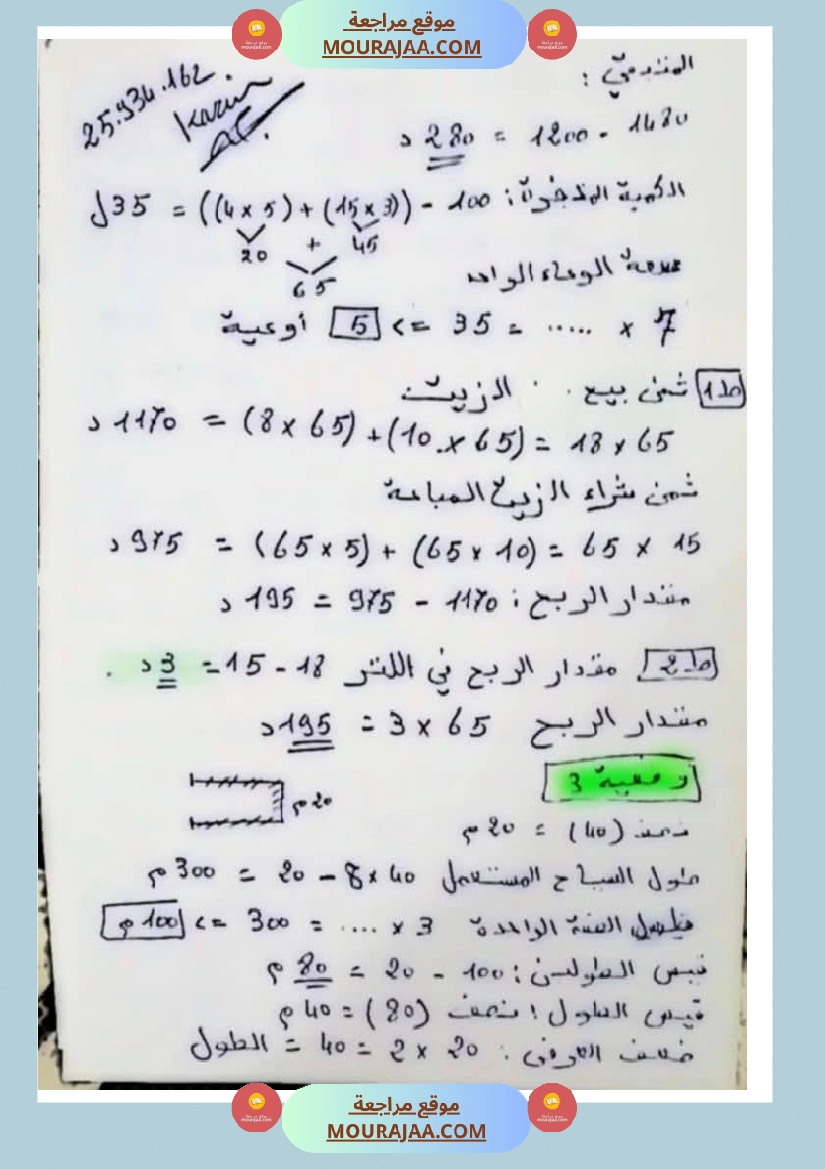 موقع مراجعة
MOURAJAA.COM
25.934.162
Karim
1480 - 1200 = 280 د
: 100 - ((3 x 15) + (5 x 4)) = 35 ل
20 + 45
65
سعة الوعاء الواحد
7 x ..... = 35 => 5 أوعية
ط1 ثمن بيع الزيت
65 x 18 = (65 x 10) + (65 x 8) = 1170 د
ثمن شراء الزيت المباعة
15 x 65 = (10 x 65) + (5 x 65) = 975 د
مقدار الربح : 1170 - 975 = 195 د
ط2 مقدار الربح في اللتر 18 - 15 = 3 د .
مقدار الربح 65 x 3 = 195 د
وضعية 3
20 م
نصف (40) = 20 م
طول السياج المستعمل 40 x 8 - 20 = 300 م
الواحدة 3 x .... = 300 => 100 م
قيس الطولين : 100 - 20 = 80 م
قيس الطول : نصف (80) = 40 م
ضعف العرض : 20 x 2 = 40 = الطول
موقع مراجعة
MOURAJAA.COM